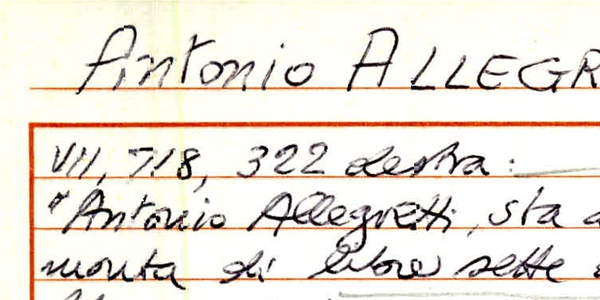 Antonio ALLEGR
VII, 718, 322 destra:
"Antonio Allegretti, sta a
monta di libre sette